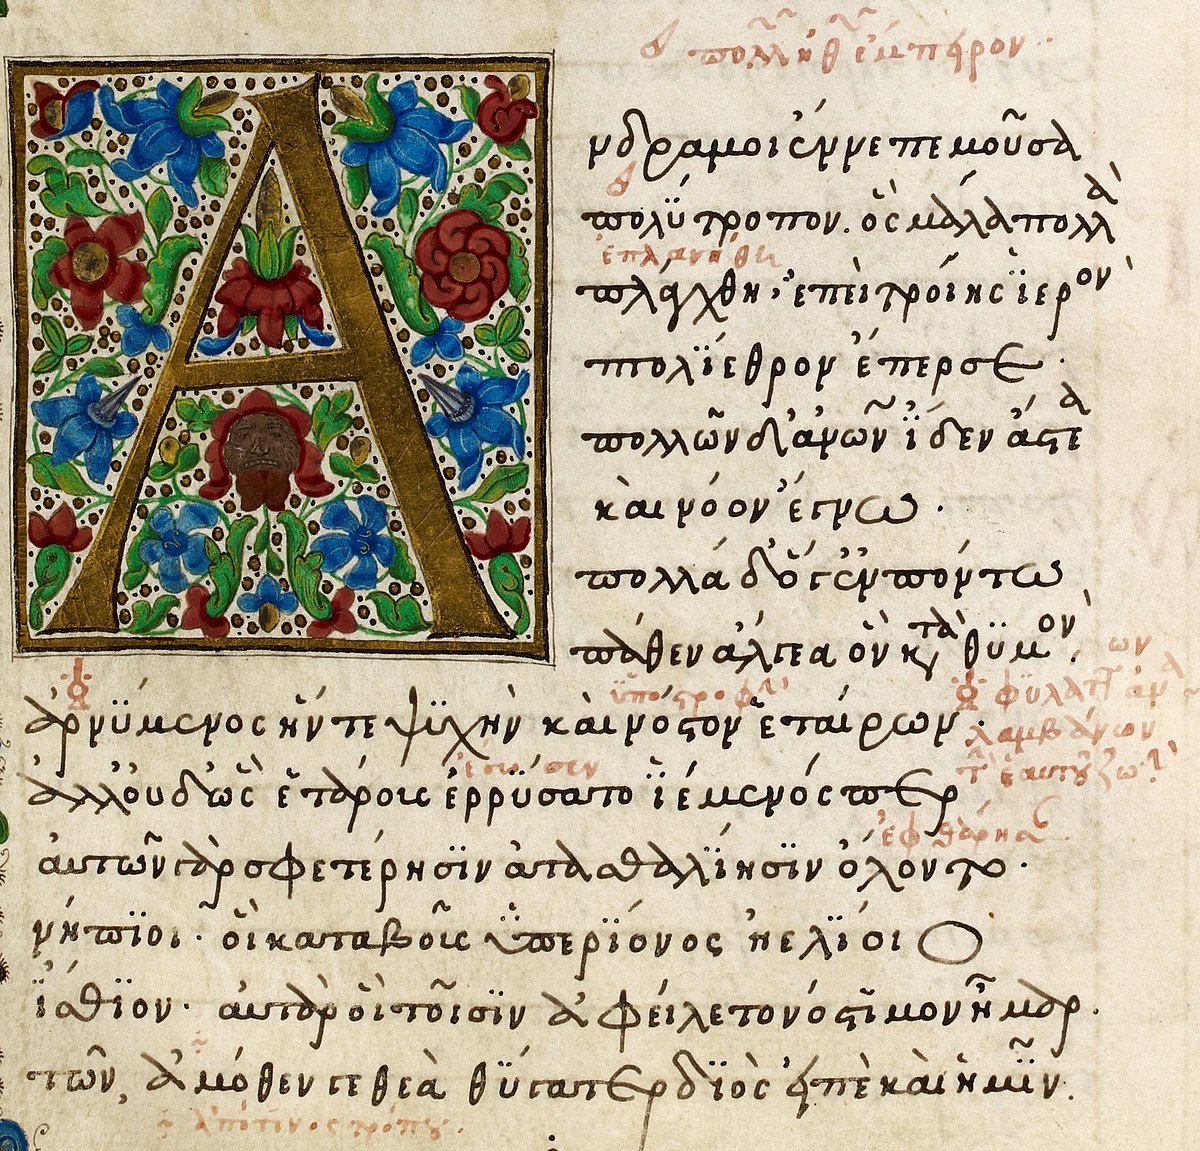 πολλὴν ἔμπειρον
Α
νδρα μοι ἔννεπε μοῦσα
πολύτροπον. ὃς μάλα πολλὰ
ἐπλανήθη
πλάγχθη, ἐπεὶ τροίης ἱερὸν
πτολίεθρον ἔπερσε.
πολλῶν δ' ἀνθρώπων ἴδεν ἄστεα
καὶ νόον ἔγνω.
πολλὰ δ' ὅγ' ἐν πόντω
πάθεν ἄλγεα ὃν κατὰ θυμόν.
ὑποστροφὴν
ἀρνύμενος ἥν τε ψυχὴν καὶ νόστον ἑταίρων.
φυλάττων
λαμβάνων
ἔσωσεν
ἀλλ' οὐδ' ὣς ἑτάροις ἐρρύσατο ἱέμενός περ
ἐφθάρησαν
αὐτῶν γὰρ σφετέρησιν ἀτασθαλίησιν ὄλοντο.
νήπιοι. οἳ κατὰ βοῦς ὑπερίονος ἠελίοιο
ἤσθιον. αὐτὰρ ὃ τοῖσιν ἀφείλετο νόστιμον ἦμαρ.
τῶν, ἁμόθεν γε θεὰ θύγατερ διὸς εἰπὲ καὶ ἡμῖν.
ἀπό τινος τρόπου.